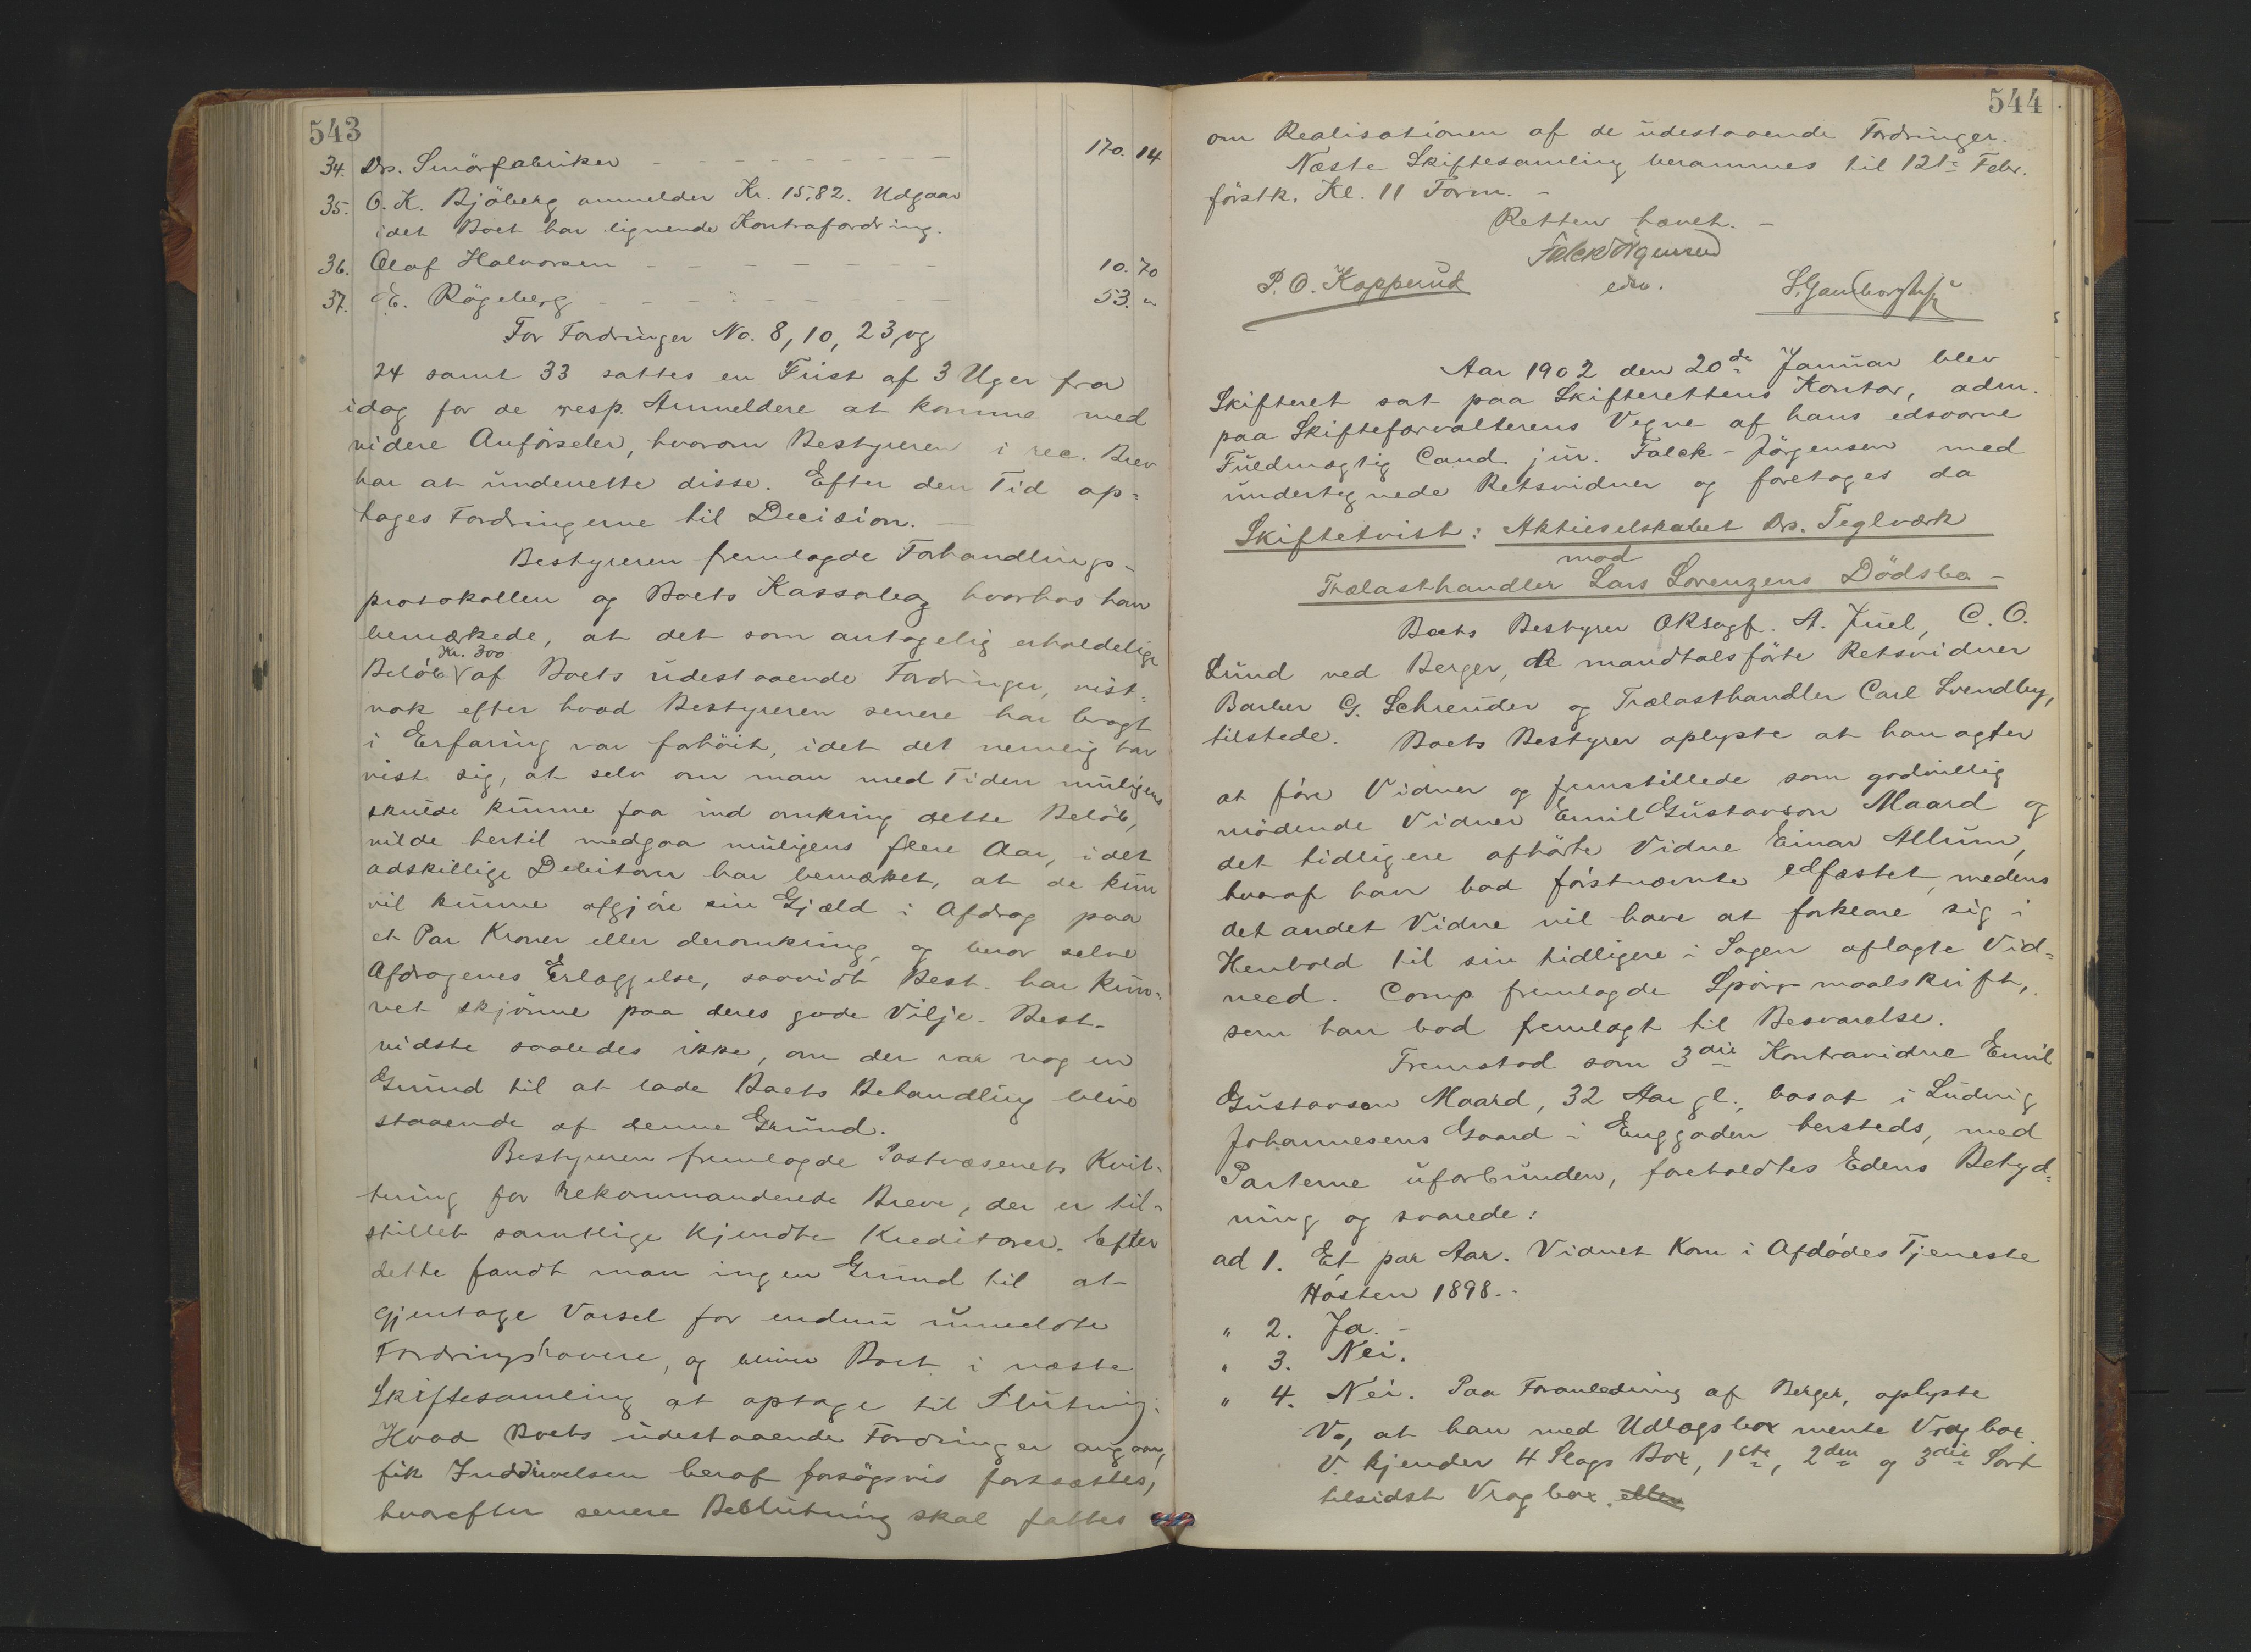 543
34. Drs. Smörfabriker - - - - - - - - - 170. 14
35. O. K. Bjöberg anmelder Kr. 15,82. Udgaar
idet Boet har lignende Kontrafordring.
36. Olaf Halvorsen - - - - - - - 10. 70
37. E. Rögeberg - - - - - - - - 53. "
For Fordringer No. 8, 10, 23, og
24 samt 33 sattes en Frist af 3 Uger fra
idag for de resp. Anmeldere at komme med
videre Anførseler, hvorom Bestyreren i rec. Brev
har at underrette disse. Efter den Tid op-
tages Fordringerne til Decision. -
Bestyreren fremlagde Forhandlings-
protokollen og Boets Kassabog hvorhos han
bemærkede, at det som antagelig erholdelige
Beløb Kr. 300 af Boets udestaaende Fordringer, vist-
nok efter hvad Bestyreren senere har bragt
i Erfaring var forhöit, idet det nemlig har
vist sig, at selv om man med Tiden muligens
skulde kunne faa ind omkring dette Belöb,
vilde hertil medgaa muligens flere Aar, idet
adskillige Debitorer har bemærket, at de kun
vil kunne afgjöre sin Gjæld i Afdrag paa
et Par Kroner eller deromkring, og beror selve
Afdragenes Erlæggelse, saavidt Best. har kun-
net skjönne paa deres gode Vilje. Best.
vidste saaledes ikke, om der var nogen
Grund til at lade Boets Behandling blive
staaende af denne Grund.
Bestyreren fremlagde Postvæsenets Kvit-
tering for rekommanderede Breve, der er til-
stillet samtlige kjendte Kreditorer. Efter
dette fandt man ingen Grund til at
gjentage Varsel for endnu umeldte
Fordringshavere, og bliver Boet i næste
Skiftesamling at optage til Slutning.
Hvad Boets udestaaende Fordringer angaar,
fik Inddrivelsen heraf forsögsvis fortsættes,
hvorefter senere Beslutning skal fattes
544
om Realisationen af de udestaaende Fordringer.
Næste Skiftesamling berammes til 12te Febr.
förstk. Kl. 11 Form. -
Retten hævet. -
Falck Jörgensen
P. O. Kopperud edsv.
Aar 1902 den 20de Januar blev
Skifteret sat paa Skifterettens Kontor, adm.
paa Skifteforvalterens Vegne af hans edsvorne
Fuldmægtig Cand. jur. Falck-Jörgensen med
undertegnede Retsvidner og foretoges da
Skiftetvist: Aktieselskabet Drs. Teglværk
mod
Trælasthandler Lars Lorenzens Dödsbo -
Boets Bestyrer Oksagf. A. Juel, C. O.
Lund ved Berger, de mandtalsförte Retsvidner
Barber G. Schreuder og Trælasthandler Carl Svendby,
tilstede. Boets Bestyrer oplyste at han agter
at före Vidner og fremstillede som godvillig
mödende Vidner Emil Gustavson Maard og
det tidligere afhörte Vidne Einar Allum,
hvoraf han bad förstnævnte edfæstet, medens
det andet Vidne vil have at forklare sig i
Henhold til sin tidligere i Sagen aflagte Vid-
need. Comp. fremlagde Spörgsmaalskrift,
som han bad fremlagt til Besvarelse.
Fremstod som 3die Kontravidne Emil
Gustavsen Maard, 32 Aar gl., bosat i Ludvig
Johannesens Gaard i Enggaden hersteds, med
Parterne uforbunden, foreholdtes Edens Betyd-
ning og svarede:
ad 1. Et par Aar. Vidnet kom i Afdødes Tjeneste
Høsten 1898. -
" 2. Ja. -
" 3. Nei.
" 4. Nei. Paa Foranledning af Berger, oplyste
V., at han med Udlagsbox mente Vragbox.
V. kjender 4 Slags Box, 1ste, 2den og 3die Sort
tilsidst Vragbox. eller